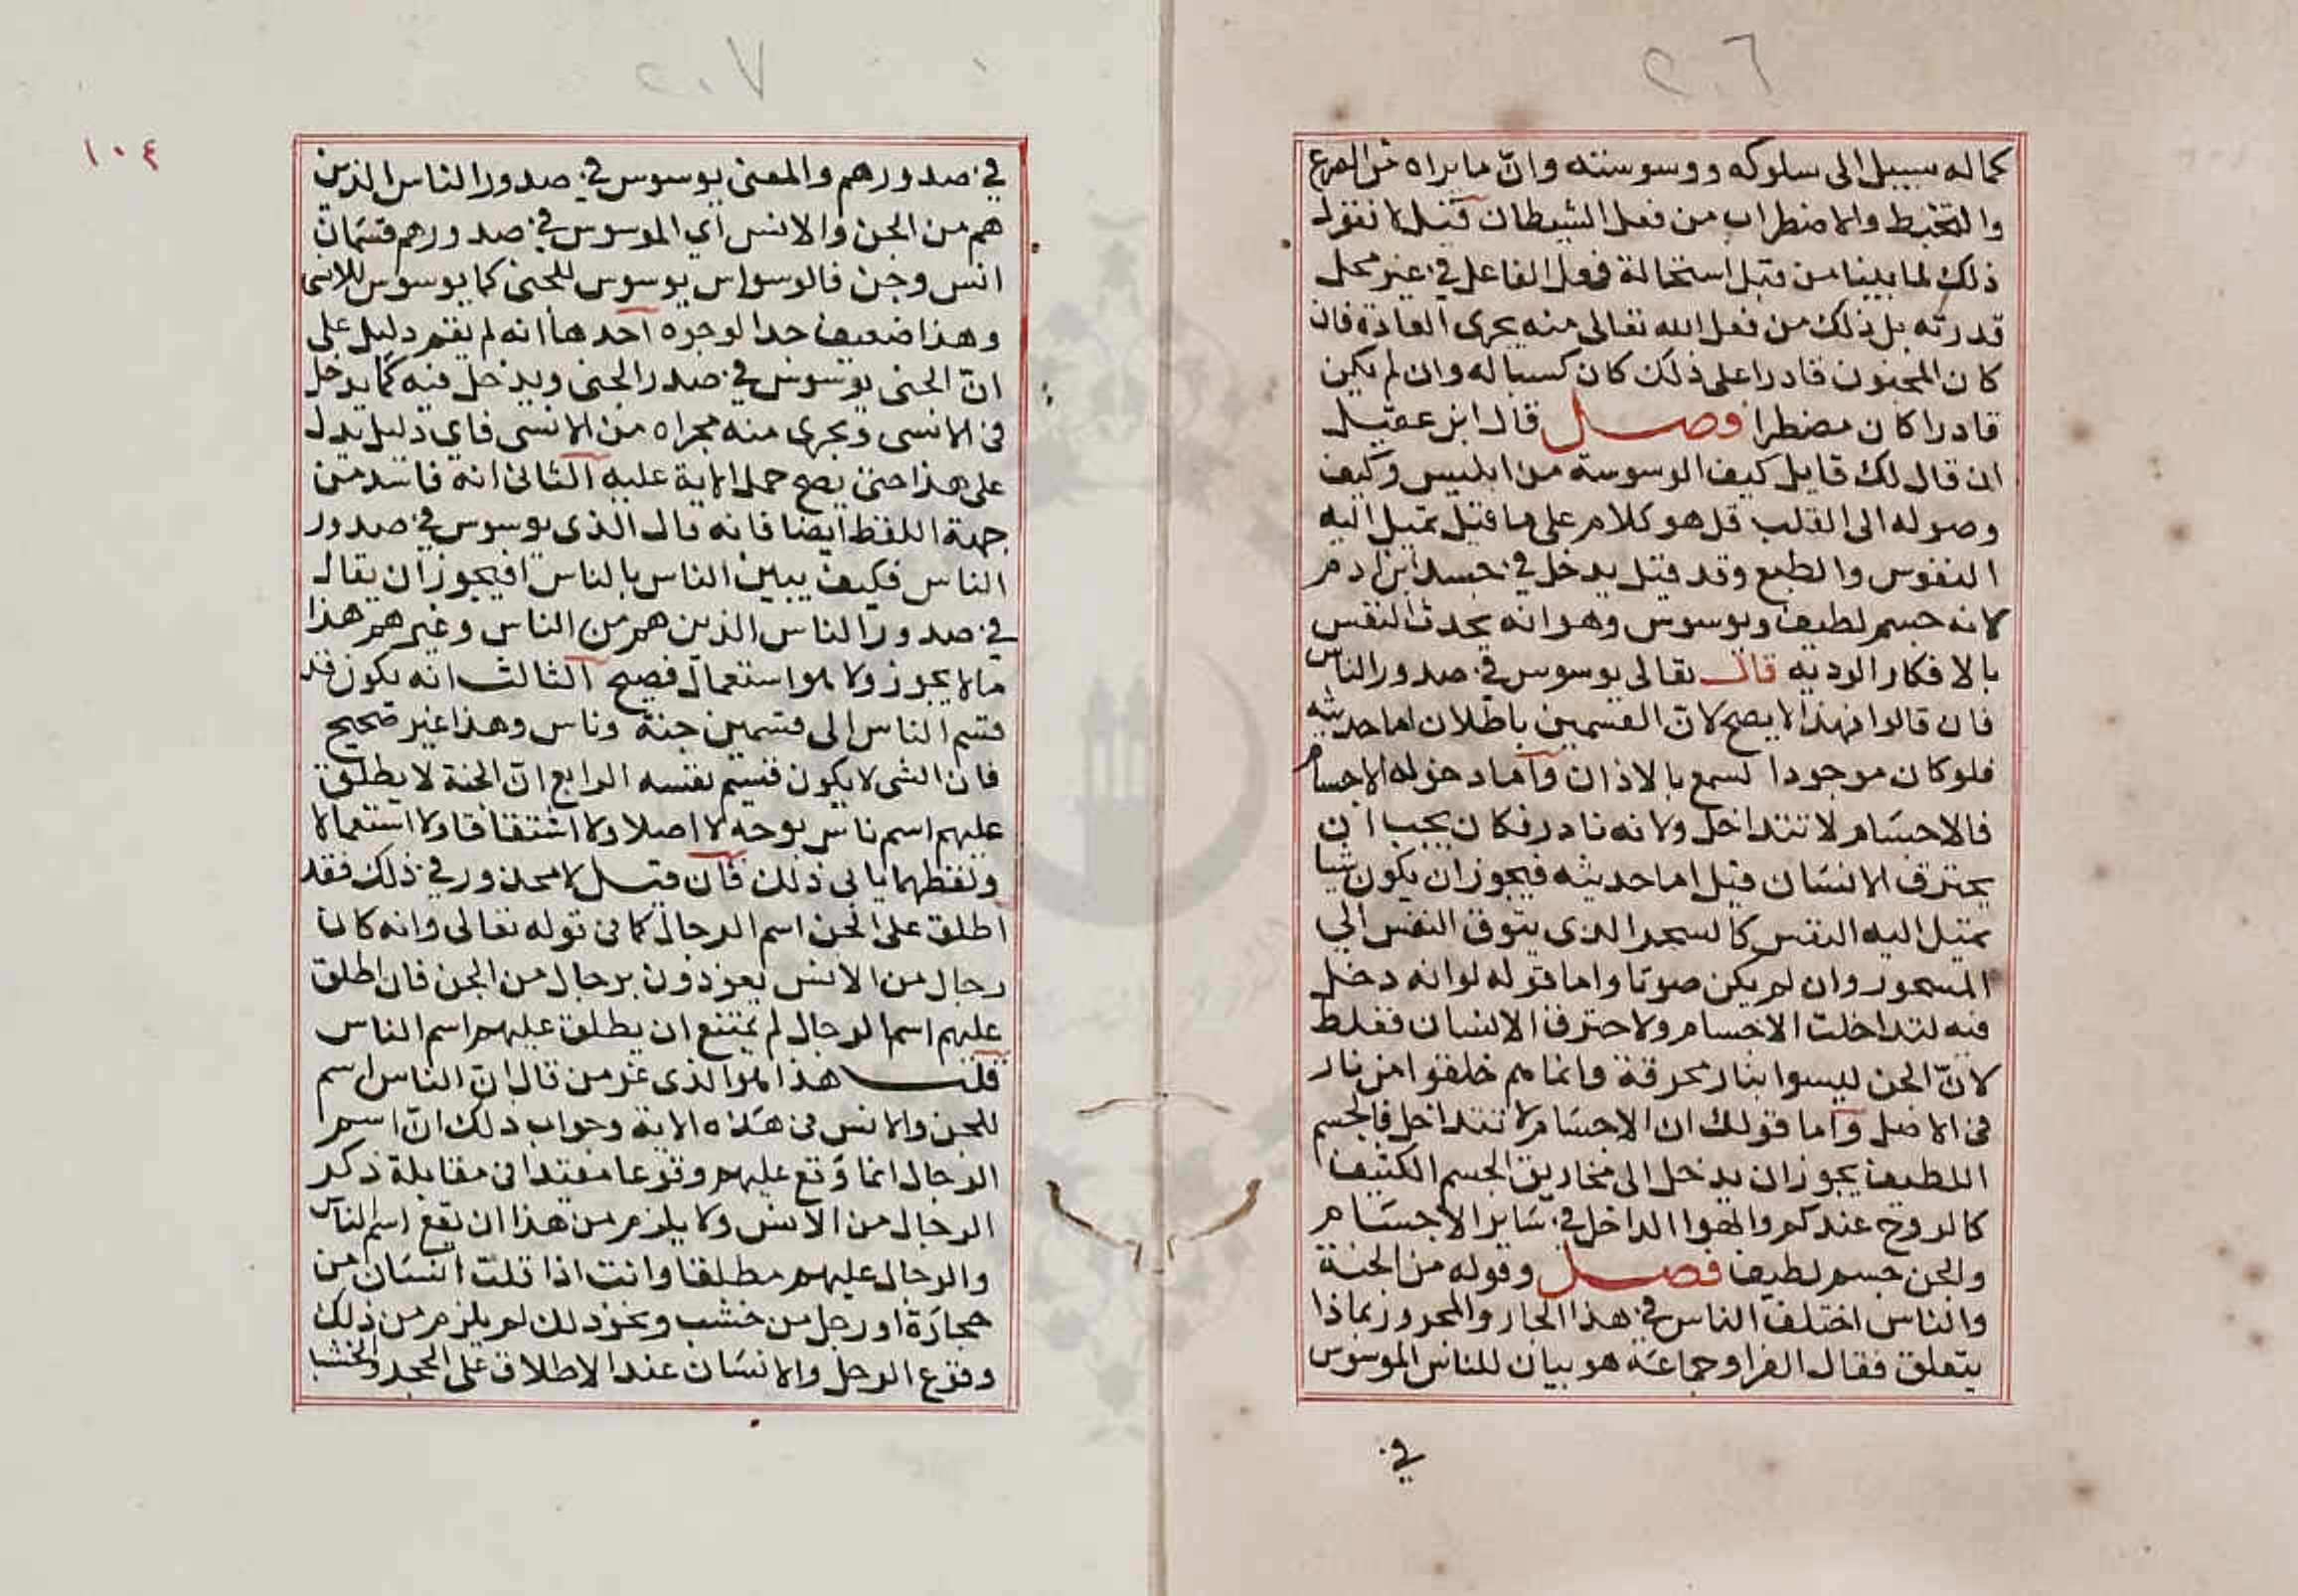 ٢٠٦
كماله سبيل الى سلوكه ووسوسته وانّ ما يراه من الصرع
والتخبط والاضطراب من فعل الشيطان قيل لا نقول
ذلك لما بينا من قبل استحالة فعل الفاعل في غير محل
قدرته بل ذلك من فعل الله تعالى منه بجرى العادة فان
كان المجنون قادرا على ذلك كان كسبا له وان لم يكن
قادرا كان مضطرا فصل قال ابن عقيل
ان قال لك قايل كيف الوسوسة من ابليس وكيف
وصوله الى القلب قل هو كلام على ما قيل تميل اليه
النفوس والطبع وقد قيل يدخل في جسد ابن ادم
لانه جسم لطيف ويوسوس وهو انه يحدث النفس
بالافكار الرديه قال تعالى يوسوس في صدور الناس
فان قالوا فهذا لا يصح لان القسمين باطلان اما حديثه
فلو كان موجودا لسمع بالاذان واما دخوله الاجسام
فالاجسام لا تتداخل ولانه نار فكان يجب ان
يحترق الانسان قيل اما حديثه فيجوز ان يكون شيا
تميل اليه النفس كالسحر الذى يتوق النفس الى
المسحور وان لم يكن صوتا واما قوله لو انه دخل
فيه لتداخلت الاجسام ولاحترق الانسان فغلط
لانّ الجن ليسوا بنار محرقة وانما هم خلقوا من نار
فى الاصل واما قولك ان الاجسام لا تتداخل فالجسم
اللطيف يجوز ان يدخل الى مخاريق الجسم الكثيف
كالروح عندكم والهوا الداخل في ساير الاجسام
والجن جسم لطيف فصل وقوله من الجنة
والناس اختلف الناس في هذا الجار والمجرور بماذا
يتعلق فقال الفرا وجماعة هو بيان للناس الموسوس
في
٢٠٧
١٠٤
في صدورهم والمعنى يوسوس في صدور الناس الذين
هم من الجن والانس اي الموسوس في صدورهم قسمان
انس وجن فالوسواس يوسوس للجنى كما يوسوس للانسى
وهذا ضعيف جدا لوجوه احدها انه لم يقم دليل على
انّ الجنى يوسوس في صدر الجنى ويدخل فيه كما يدخل
فى الانسى ويجرى منه مجراه من الانسى فاي دليل يدل
على هذا حتى يصح حمل الاية عليه الثانى انه فاسد من
جهة اللفظ ايضا فانه قال الذى يوسوس في صدور
الناس فكيف يبين الناس بالناس افيجوز ان يقال
في صدور الناس الذين هم من الناس وغيرهم هذا
ما لا يجوز ولا هو استعمال فصيح الثالث انه يكون قد
قسم الناس الى قسمين جنة وناس وهذا غير صحيح
فان الشى لا يكون قسيم نفسه الرابع انّ الجنة لا يطلق
عليهم اسم ناس بوجه لا اصلا ولا اشتقاقا ولا استعمالا
ولفظهما يابى ذلك فان قيل لا محذور في ذلك فقد
اطلق على الجن اسم الرجال كما فى قوله تعالى وانه كان
رجال من الانس يعوذون برجال من الجن فان اطلق
عليهم اسم الرجال لم يمتنع ان يطلق عليهم اسم الناس
قلت هذا هو الذى غر من قال انّ الناس اسم
للجن والانس فى هذه الاية وجواب ذلك انّ اسم
الرجال انما وقع عليهم وقوعا مقيدا فى مقابلة ذكر
الرجال من الانس ولا يلزم من هذا ان يقع اسم الناس
والرجال عليهم مطلقا وانت اذا قلت انسان من
حجارة او رجل من خشب ونحو ذلك لم يلزم من ذلك
وقوع الرجل والانسان عند الاطلاق على الحجر والخشب